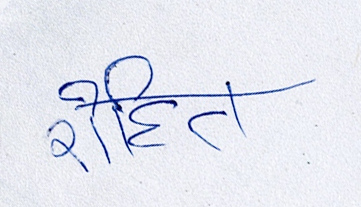 रोहित